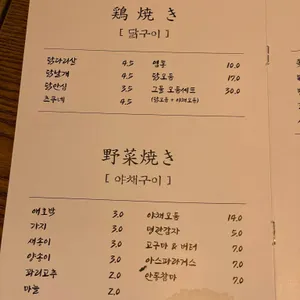 鶏焼き
[ 닭구이 ]
닭다리살 4.5
닭날개 4.5
닭안심 3.5
츠쿠네 4.5
염통 10.0
닭모둠 17.0
고릴 모둠세트 30.0
(닭모둠 + 야채모둠)
野菜焼き
[ 야채구이 ]
애호박 3.0
가지 3.0
새송이 3.0
양송이 3.0
꽈리고추 2.0
마늘 2.0
야채모둠 14.0
명란감자 5.0
고구마 & 버터 7.0
아스파라거스 7.0
안동참마 7.0